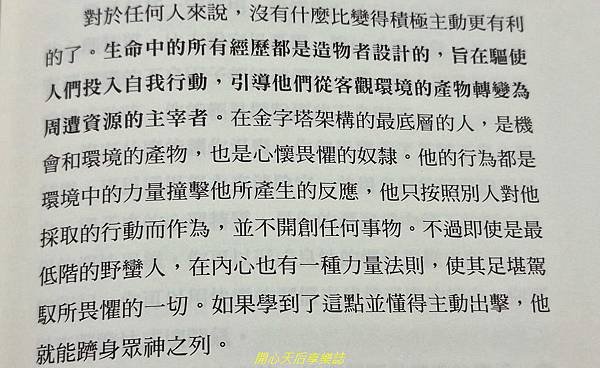 對於任何人來說，沒有什麼比變得積極主動更有利
的了。生命中的所有經歷都是造物者設計的，旨在驅使
人們投入自我行動，引導他們從客觀環境的產物轉變為
周遭資源的主宰者。在金字塔架構的最底層的人，是機
會和環境的產物，也是心懷畏懼的奴隸。他的行為都是
環境中的力量撞擊他所產生的反應，他只按照別人對他
採取的行動而作為，並不開創任何事物。不過即使是最
低階的野蠻人，在內心也有一種力量法則，使其足堪駕
馭所畏懼的一切。如果學到了這點並懂得主動出擊，他
就能躋身眾神之列。
開心天后享樂誌